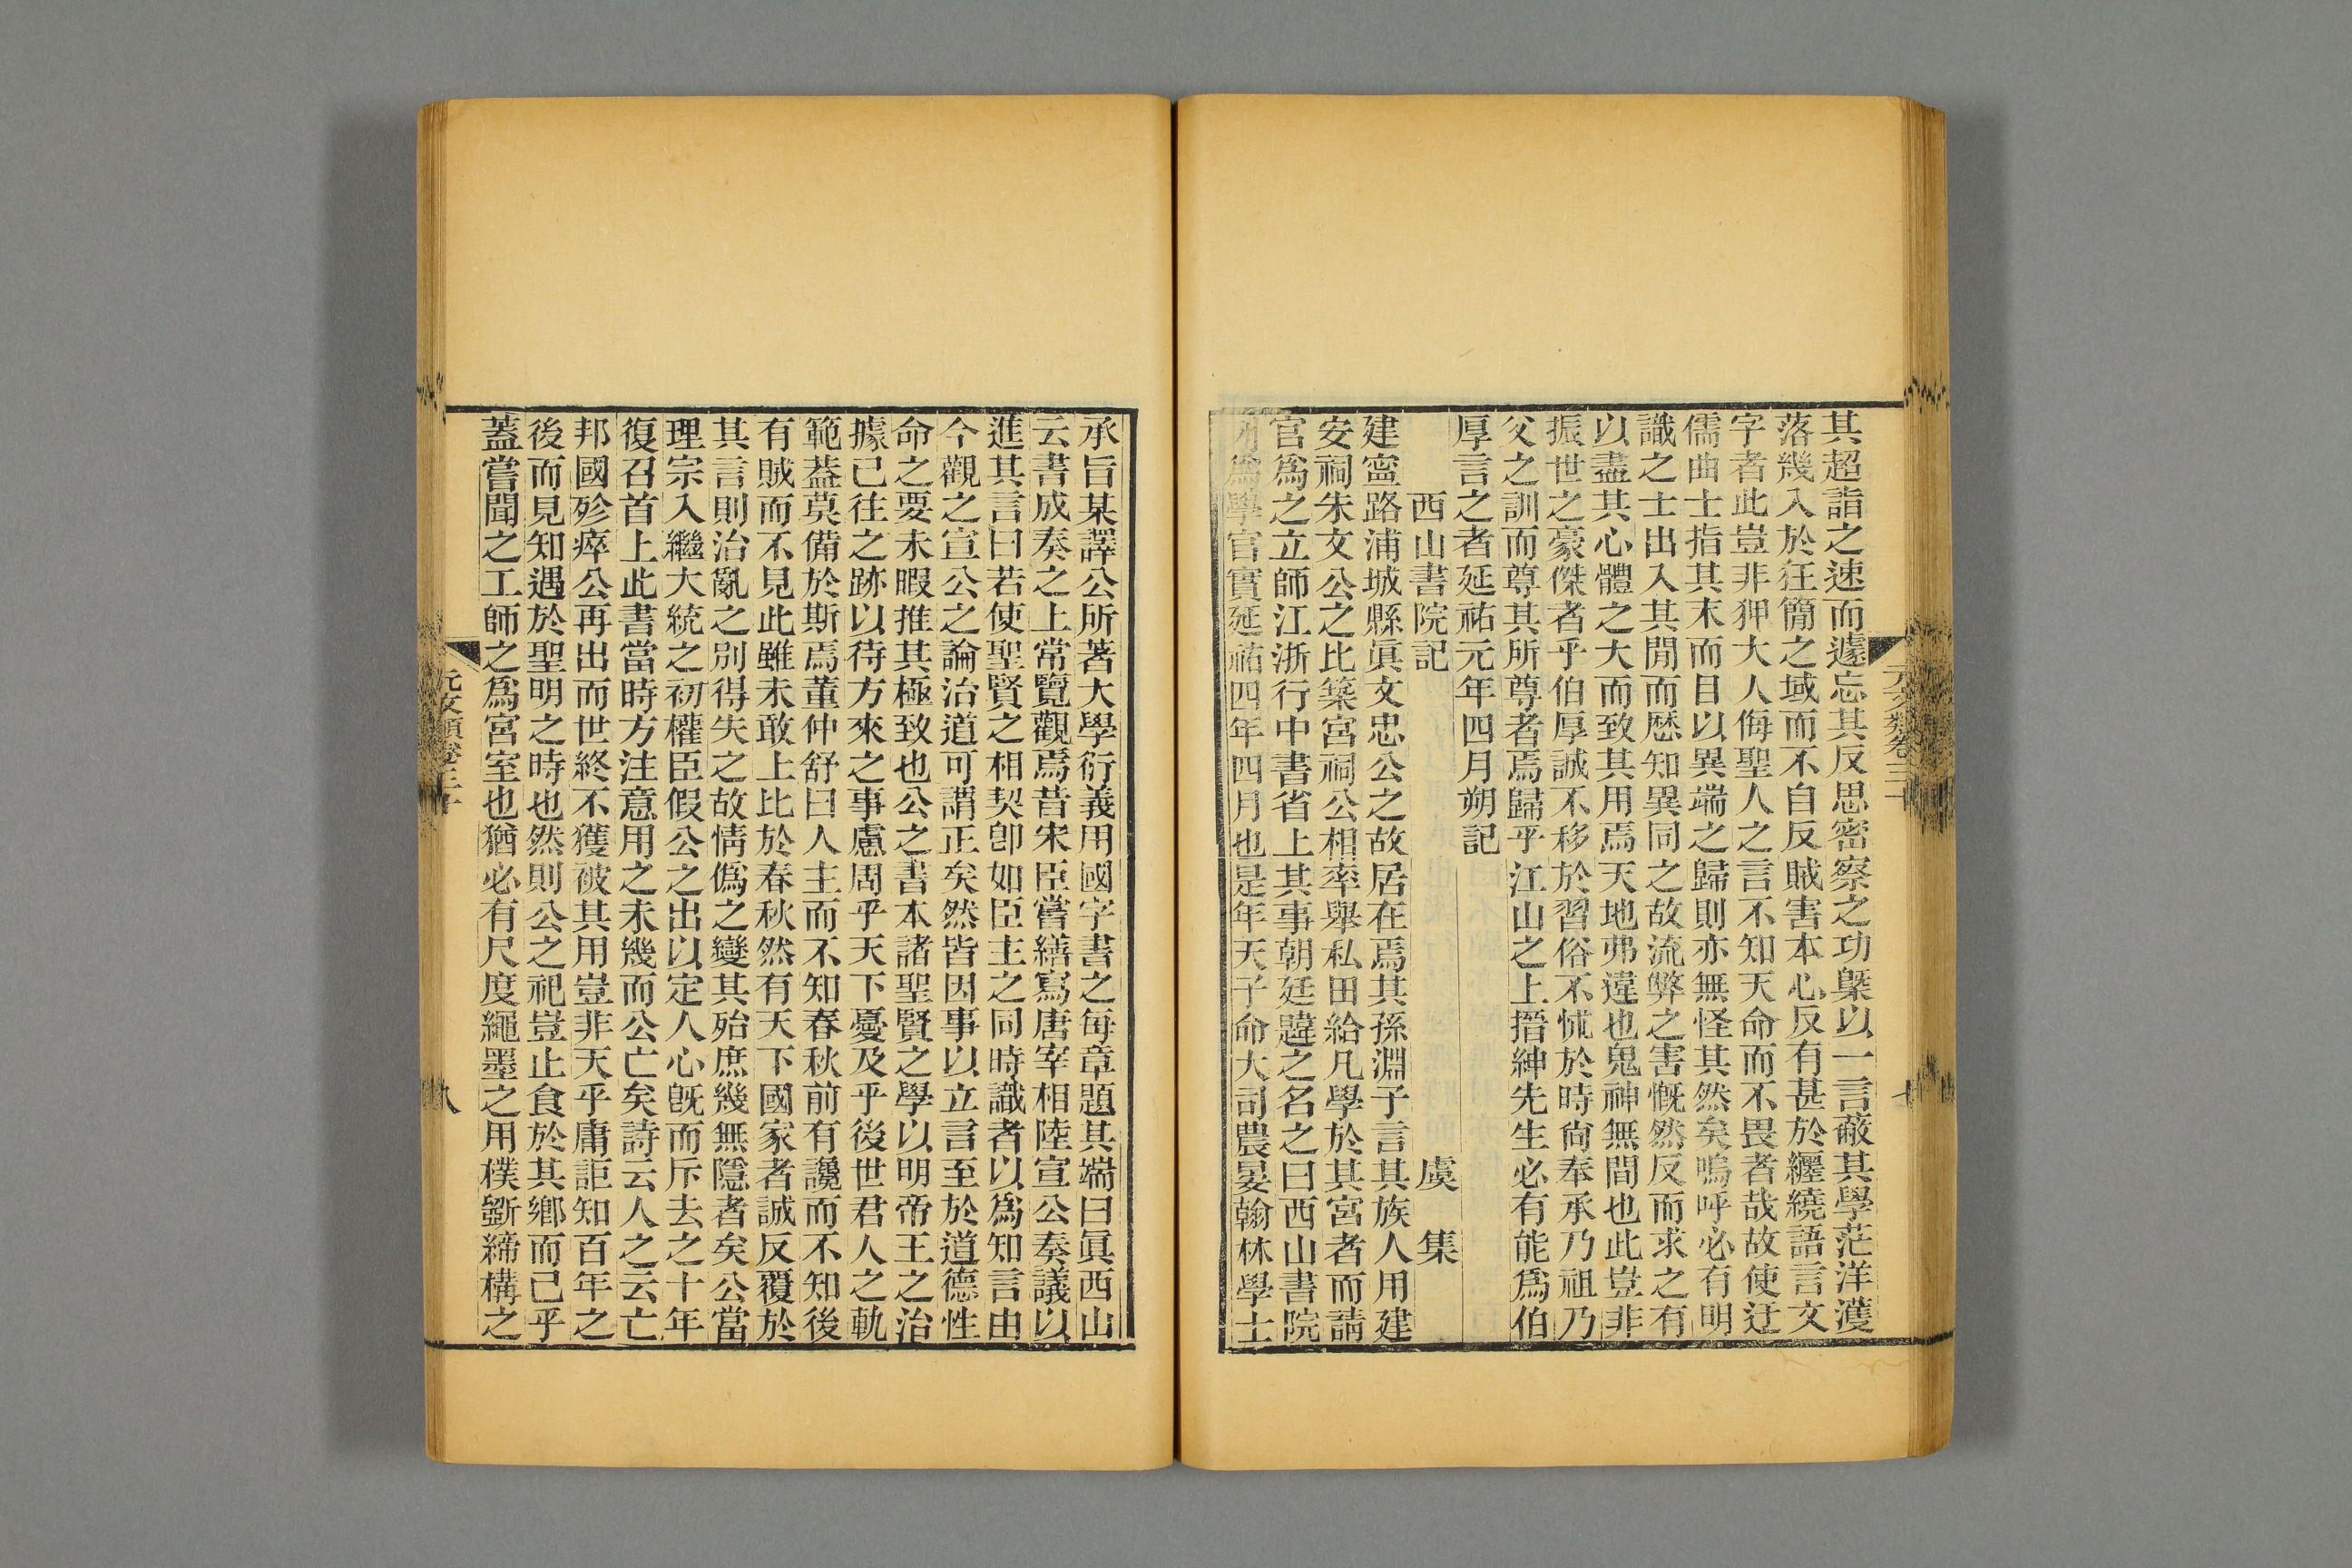 其超詣之速而遽忘其反思密察之功槩以一言蔽其學茫洋濩
落幾入於狂簡之域而不自反賊害本心反有甚於纒繞語言文
字者此豈非狎大人侮聖人之言不知天命而不畏者哉故使迂
儒曲士指其末而目以異端之歸則亦無怪其然矣嗚呼必有明
識之士出入其閒而厯知異同之故流弊之害慨然反而求之有
以盡其心體之大而致其用焉天地弗違也鬼神無間也此豈非
振世之豪傑者乎伯厚誠不移於習俗不怵於時尙奉承乃祖乃
父之訓而尊其所尊者焉歸乎江山之上搢紳先生必有能爲伯
厚言之者延祐元年四月朔記
西山書院記 虞集
建寍路浦城縣眞文忠公之故居在焉其孫淵子言其族人用建
安祠朱文公之比築宮祠公相率舉私田給凡學於其宮者而請
官爲之立師江浙行中書省上其事朝廷韙之名之曰西山書院
列爲學官實延祐四年四月也是年天子命大司農晏翰林學士
元文類卷三十
七
承旨某譯公所著大學衍義用國字書之每章題其端曰眞西山
云書成奏之上常覽觀焉昔宋臣嘗繕寫唐宰相陸宣公奏議以
進其言曰若使聖賢之相契卽如臣主之同時識者以爲知言由
今觀之宣公之論治道可謂正矣然皆因事以立言至於道德性
命之要未暇推其極致也公之書本諸聖賢之學以明帝王之治
據已往之跡以待方來之事慮周乎天下憂及乎後世君人之軌
範葢莫備於斯焉董仲舒曰人主而不知春秋前有讒而不知後
有賊而不見此雖未敢上比於春秋然有天下國家者誠反覆於
其言則治亂之別得失之故情僞之變其殆庶幾無隱者矣公當
理宗入繼大統之初權臣假公之出以定人心旣而斥去之十年
復召首上此書當時方注意用之未幾而公亡矣詩云人之云亡
邦國殄瘁公再出而世終不獲被其用豈非天乎庸詎知百年之
後而見知遇於聖明之時也然則公之祀豈止食於其鄕而已乎
蓋嘗聞之工師之爲宮室也猶必有尺度繩墨之用樸斵締構之
元文類卷三十
八